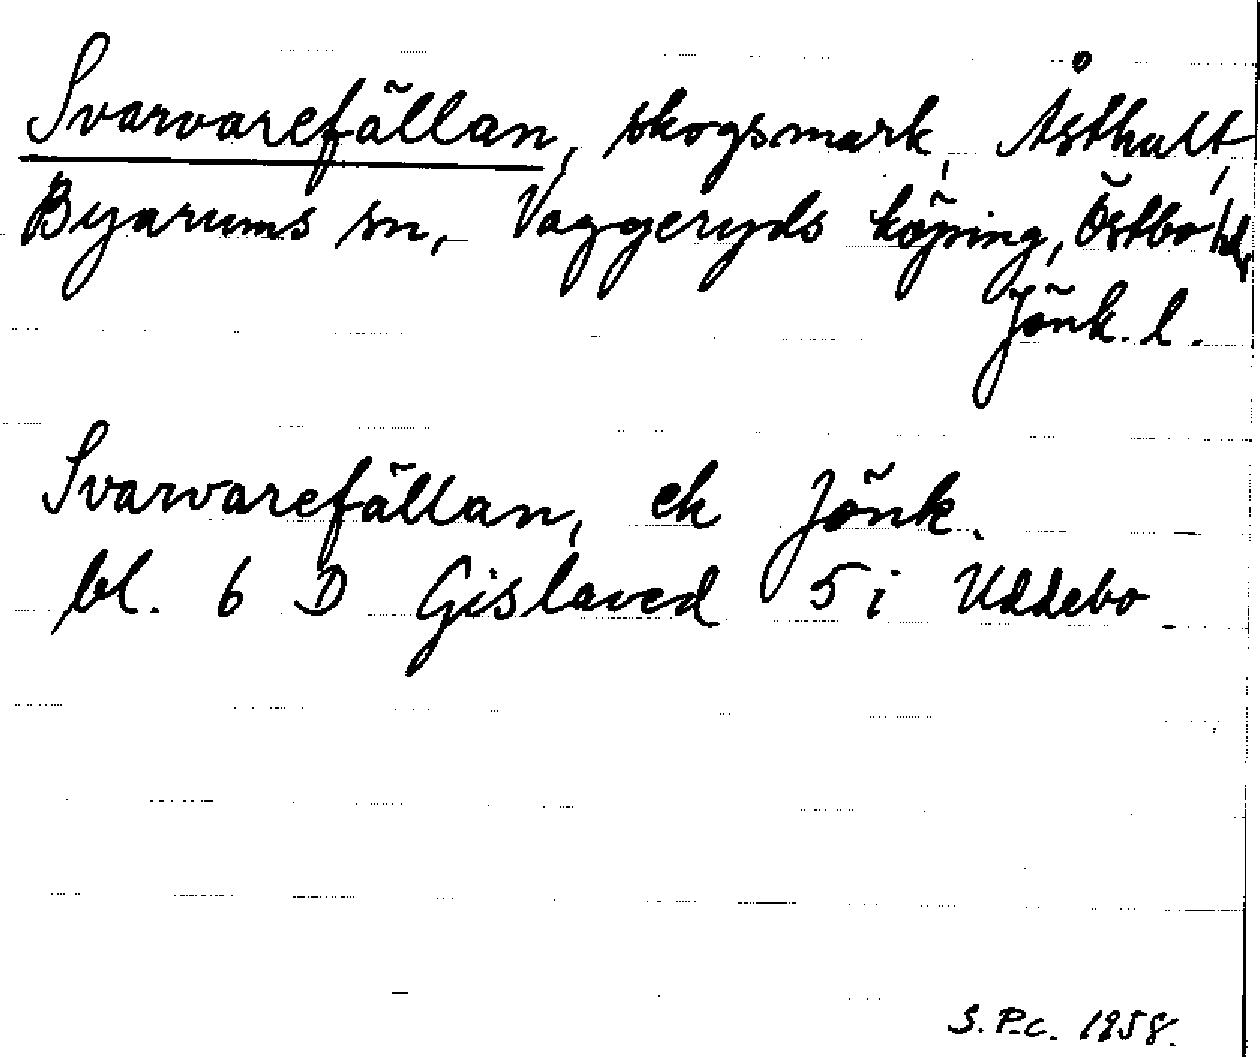 Svarvarefällan, skogsmark, Åsthult,
Byarums sn, Vaggeryds köping, Östbo hd,
Jönk. l.
Svarvarefällan, ek Jönk.
bl. 6 D Gislaved 5 i Uddebo
S. P-c. 1958.